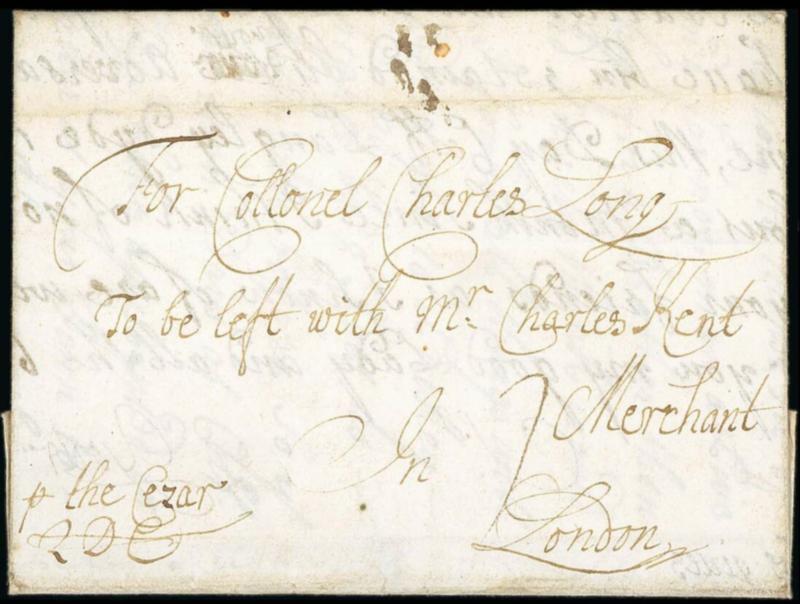 For Collonel Charles Long
To be left with Mr. Charles Kent
Merchant
In
London
p the Cezar
Q D C